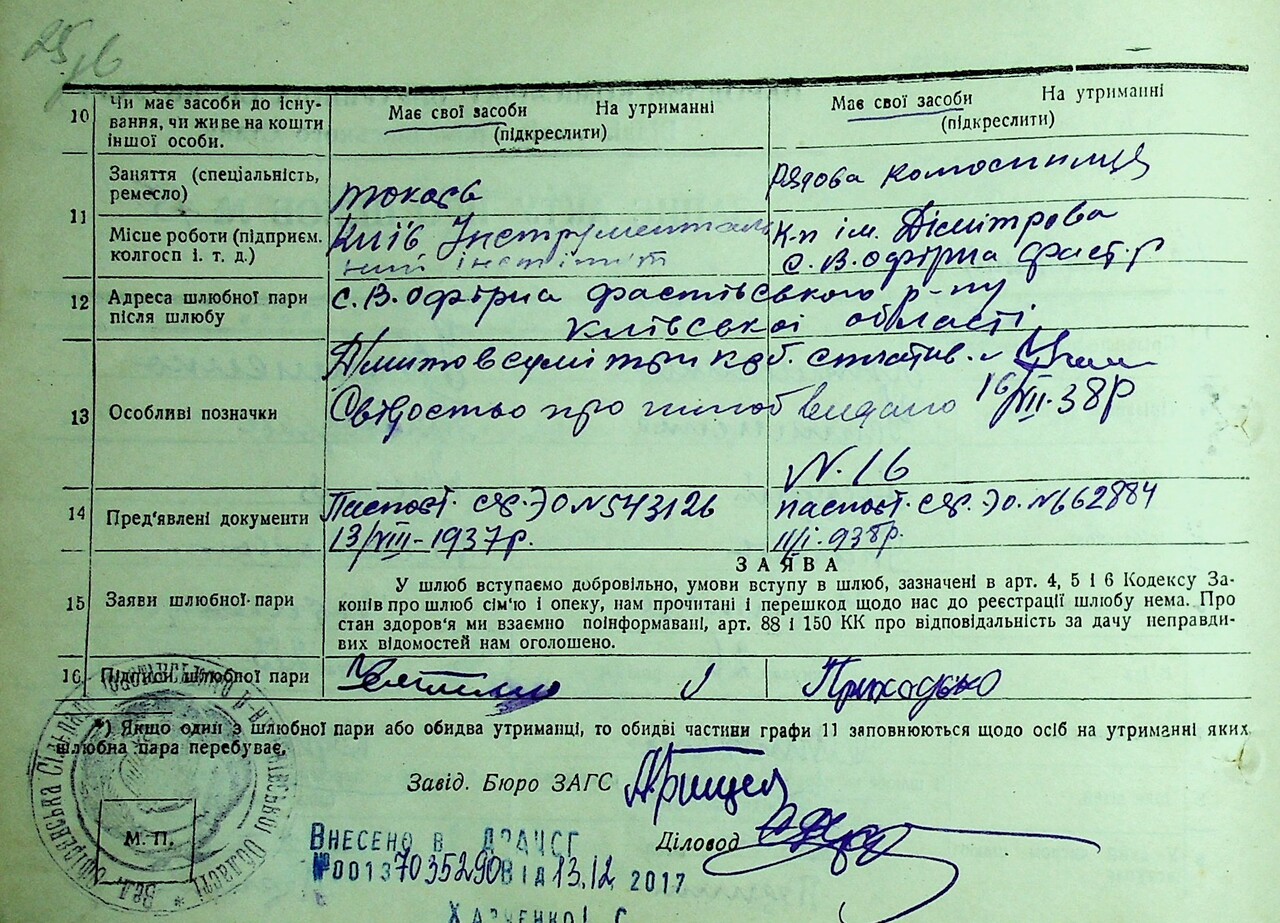 25
10 Чи має засоби до існу-
вання, чи живе на кошти
іншої особи.
Має свої засоби На утриманні
(підкреслити)
Має свої засоби На утриманні
(підкреслити)
11 Заняття (спеціальність,
ремесло)
токарь
рядова колгоспниця
Місце роботи (підприєм.
колгосп і. т. д.)
Київ Інструментал
ний інстітут
К-п ім. Дімітрова
с. В.офірна Фаст. р
12 Адреса шлюбної пари
після шлюбу
с. В.офірна Фастівського р-ну
Київської області
13 Особливі позначки
при каб. сплатив.
Свідоство про шлюб видано 16/VII-38р
N. 16
14 Пред'явлені документи
Паспорт. сер. ЭО N543126
13/VIII-1937р.
Паспорт. сер. ЭО. N662884
11/I-938р.
ЗАЯВА
15 Заяви шлюбної пари
У шлюб вступаємо добровільно, умови вступу в шлюб, зазначені в арт. 4, 5 і 6 Кодексу За-
конів про шлюб сім'ю і опеку, нам прочитані і перешкод щодо нас до реєстрації шлюбу нема. Про
стан здоров'я ми взаємно поінформавані, арт. 88 і 150 КК про відповідальність за дачу неправди-
вих відомостей нам оголошено.
16 Підписи шлюбної пари
Приходько
*) Якщо один з шлюбної пари або обидва утриманці, то обидві частини графи 11 заповнюються щодо осіб на утриманні яких
шлюбна пара перебуває.
Завід. Бюро ЗАГС
Діловод
М. П.
Внесено в ДРАЦСГ
№00137035290 від 13.12 2017
Харченко І. С.